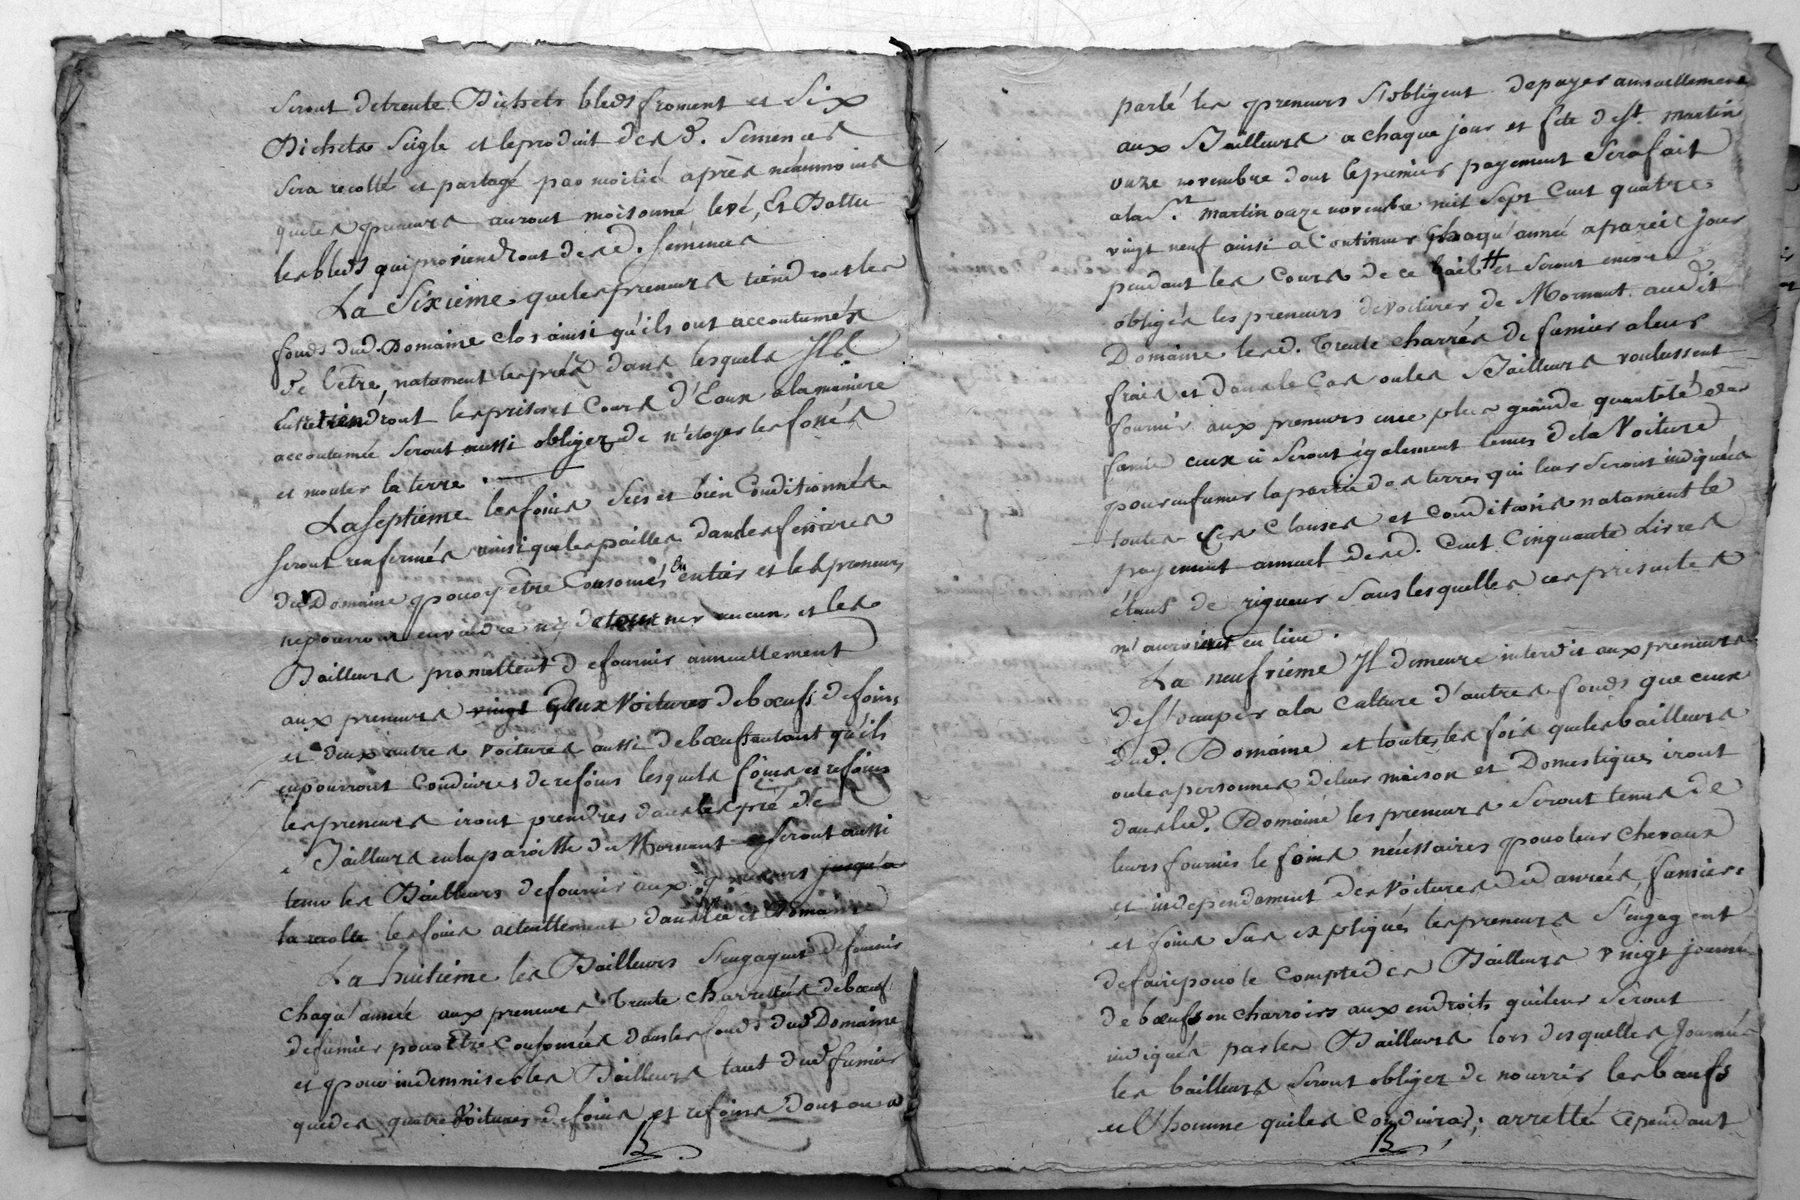 seront detrente Bichets bleds froment et Six
Bichets Seigle et leproduit des d. Semences
sera recolté et partagé par moitié après néanmoins
queles preneurs auront moisonné levé, Et Battu
les bleds qui proviendront des d. semences
La Sixième queles preneurs tiendront les
fonds dud. Domaine clos ainsi qu'ils ont accoutumés
de l'être, natament les prés dans lesquels Ils
entretiendront les prises et Cours d'Eaux ala manière
accoutumée seront aussi obligez de n'étoyer les fossés
et monter la terre .
La septième les foins secs et bien Conditionnés
seront renfermés ainsi que les pailles dans les fenières
dud Domaine pour y être Consomés En entier et les preneurs
ne pourront en vendre ny détourner aucun et les
Bailleurs promettent de fournir annuellement
aux preneurs vingt deux Voitures de bœufs de foins
et deux autres voitures aussi de bœufs autant qu'ils
en pourront Conduires de refoins lesquels foins et refoins
les preneurs iront prendres dans les pré de
Bailleurs en la paroisse de Mornant seront aussi
tenu les Bailleurs de fournir aux preneurs jusqu'a
la recolte les foins actuellement dans led. Domaine
La huitième les Bailleurs s'engagent de fournir
chaqu'année aux preneurs Trente charrettées de bœufs
de fumier pour Etre Consomées dans les fonds dud Domaine
et pour indemniser les Bailleurs tant dud fumier
que des quatre Voitures de foins et refoins dont on a
B
parlé les preneurs s'obligent de payer annuellement
aux Bailleurs a chaque jour et fête de st martin
onze novembre dont le premier payement sera fait
a la St martin onze novembre mil Sept Cent quatre
vingt neuf ainsi a Continuer Chaqu'année a pareil jour
pendant les Cours de ce bail # et seront encore
obligés les preneurs de voiturer de Mornant audit
Domaine les d. Trente charrés de fumier a leurs
frais et dans le Cas ou les Bailleurs voulussent
fournir aux preneurs une plus grande quantité de
fumier ceux ci seront également tenus de la Voiture
pour enfumer la partie des terres qui leur seront indiquées
toutes Ces Clauses et conditions natament le
payement annuel des d. Cent Cinquante Livres
étant de rigueur sans lesquelles ces présentes
n'auroient eu lieu .
La neufvième Il demeure interdit aux preneurs
de s'occuper a la Culture d'autres fonds que ceux
dud. Domaine et toutes les fois que les bailleurs
ou les personnes de leur maison et Domestiques iront
dans led. Domaine les preneurs seront tenus de
leurs fournir le foins nécessaires pour leur Chevaux
et independament des Voitures de denrées, fumier
et foins sus expliqués les preneurs s'engagent
de faire pour le Compte des Bailleurs vingt journées
de bœufs en charrois aux endroits qui leur seront
indiqués par les Bailleurs lors desquelles Journées
les bailleurs seront obligez de nourrir les bœufs
et l'homme qui les Conduira; arretté Cependant
B